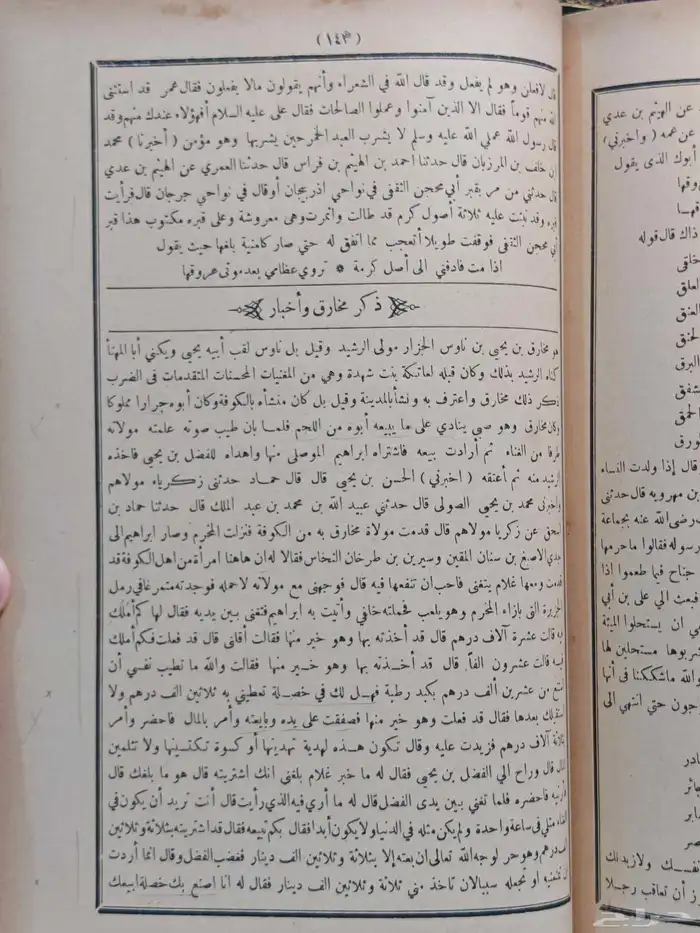 (١٤٣)
قال لأفعلن وهو لم يفعل وقد قال الله في الشعراء وأنهم يقولون مالا يفعلون فقال عمر قد استثنى
الله منهم قوماً فقال الا الذين آمنوا وعملوا الصالحات فقال على عليه السلام أفهؤلاء عندك منهم وقد
قال رسول الله صلى الله عليه وسلم لا يشرب العبد الخمر حين يشربها وهو مؤمن (أخبرنا) محمد
ابن خلف بن المرزبان قال حدثنا احمد بن الهيثم بن فراس قال حدثنا العمري عن الهيثم بن عدي
قال حدثني من مر بقبر أبي محجن الثقفى في نواحي اذربيجان أو قال في نواحي جرجان قال فرأيت
قبره وقد نبتت عليه ثلاثة أصول كرم قد طالت وأثمرت وهى معروشة وعلى قبره مكتوب هذا قبر
أبي محجن الثقفى فوقفت طويلا أتعجب مما اتفق له حتي صار كأمنية بلغها حيث يقول
اذا مت فادفني الى أصل كرمة * تروي عظامي بعد موتى عروقها
ذكر مخارق وأخباره
هو مخارق بن يحيى بن ناوس الجزار مولى الرشيد وقيل بل ناوس لقب أبيه يحيى ويكني أبا المهنأ
كناه الرشيد بذلك وكان قبله لعاتكة بنت شهدة وهي من المغنيات المحسنات المتقدمات فى الضرب
ذكر ذلك مخارق واعترف به ونشأ بالمدينة وقيل بل كان منشأه بالكوفة وكان أبوه جزارا مملوكا
وكان مخارق وهو صبي ينادي على ما يبيعه أبوه من اللحم فلما بان طيب صوته علمته مولاته
طرفا من الغناء ثم أرادت بيعه فاشتراه ابراهيم الموصلى منها وأهداه للفضل بن يحيي فأخذه
الرشيد منه ثم أعتقه (اخبرني) الحسن بن يحيي قال قال حماد حدثني زكرياء مولاهم
وأخبرني محمد بن يحيي الصولى قال حدثني عبيد الله بن محمد بن عبد الملك قال حدثنا حماد بن
اسحق عن زكريا مولاهم قال قدمت مولاة مخارق به من الكوفة فنزلت المخرم وصار ابراهيم الى
جدي الاصبغ بن سنان المقين وسيرين بن طرخان النخاس فقالا له ان هاهنا امرأة من اهل الكوفة قد
قدمت ومعها غلام يتغنى فاحب ان تنفعها فيه قال فوجهنى مع مولاته لاحمله فوجدته متمرغا في رمل
الجزيرة التى بازاء المخرم وهو يلعب فحملته خلفي وأتيت به ابراهيم فتغنى بين يديه فقال لها كم أملك
به قالت عشرة آلاف درهم قال قد أخذته بها وهو خير منها فقالت أقلنى قال قد فعلت فكم أملك
فيه قالت عشرون الفاً قال قد أخذته بها وهو خير منها فقالت والله ما تطيب نفسي أن
امتنع من عشرين ألف درهم بكبد رطبة فهل لك في خصلة تعطيني به ثلاثين الف درهم ولا
استقيلك بعدها فقال قد فعلت وهو خير منها فصفقت على يده وبايعته وأمر بالمال فأحضر وأمر
بثلاثة آلاف درهم فزيدت عليه وقال تكون هذه لهدية تهدينها أو كسوة تكتسينها ولا تثلمين
المال قال وراح الي الفضل بن يحيي فقال له ما خبر غلام بلغنى انك اشتريته قال هو ما بلغك قال
فأرنيه فاحضره فلما تغنى بين يدى الفضل قال له ما أرى فيه الذي رأيت قال أنت تريد أن يكون في
الغناء مثلي في ساعة واحدة ولم يكن مثله في الدنيا ولا يكون أبدا فقال بكم تبيعه فقال قد اشتريته بثلاثة وثلاثين
الف درهم وهو حر لوجه الله تعالى ان بعته إلا بثلاثة وثلاثين الف دينار فغضب الفضل وقال انما أردت
ان تمنعنيه او تجعله سببا لأن تأخذ مني ثلاثة وثلاثين الف دينار فقال له انا اصنع بك خصلة ابيعك
عن الهيثم بن عدي
عن عمه (واخبرني)
أبوك الذى يقول
ذاك قال قوله
قال إذا ولدت النساء
بن مهرويه قال حدثني
رضى الله عنه بجماعة
رسوله فقالوا ما حرمها
جناح فيما طعموا اذا
فبعث الي على بن أبي
ان يستحلوا الميتة
شربوها مستحلين لها
والله ما شككنا في أنها
جون حتي انتهي الى
نفسك ولازيدنك
ز أن تعاقب رجلا
حراج